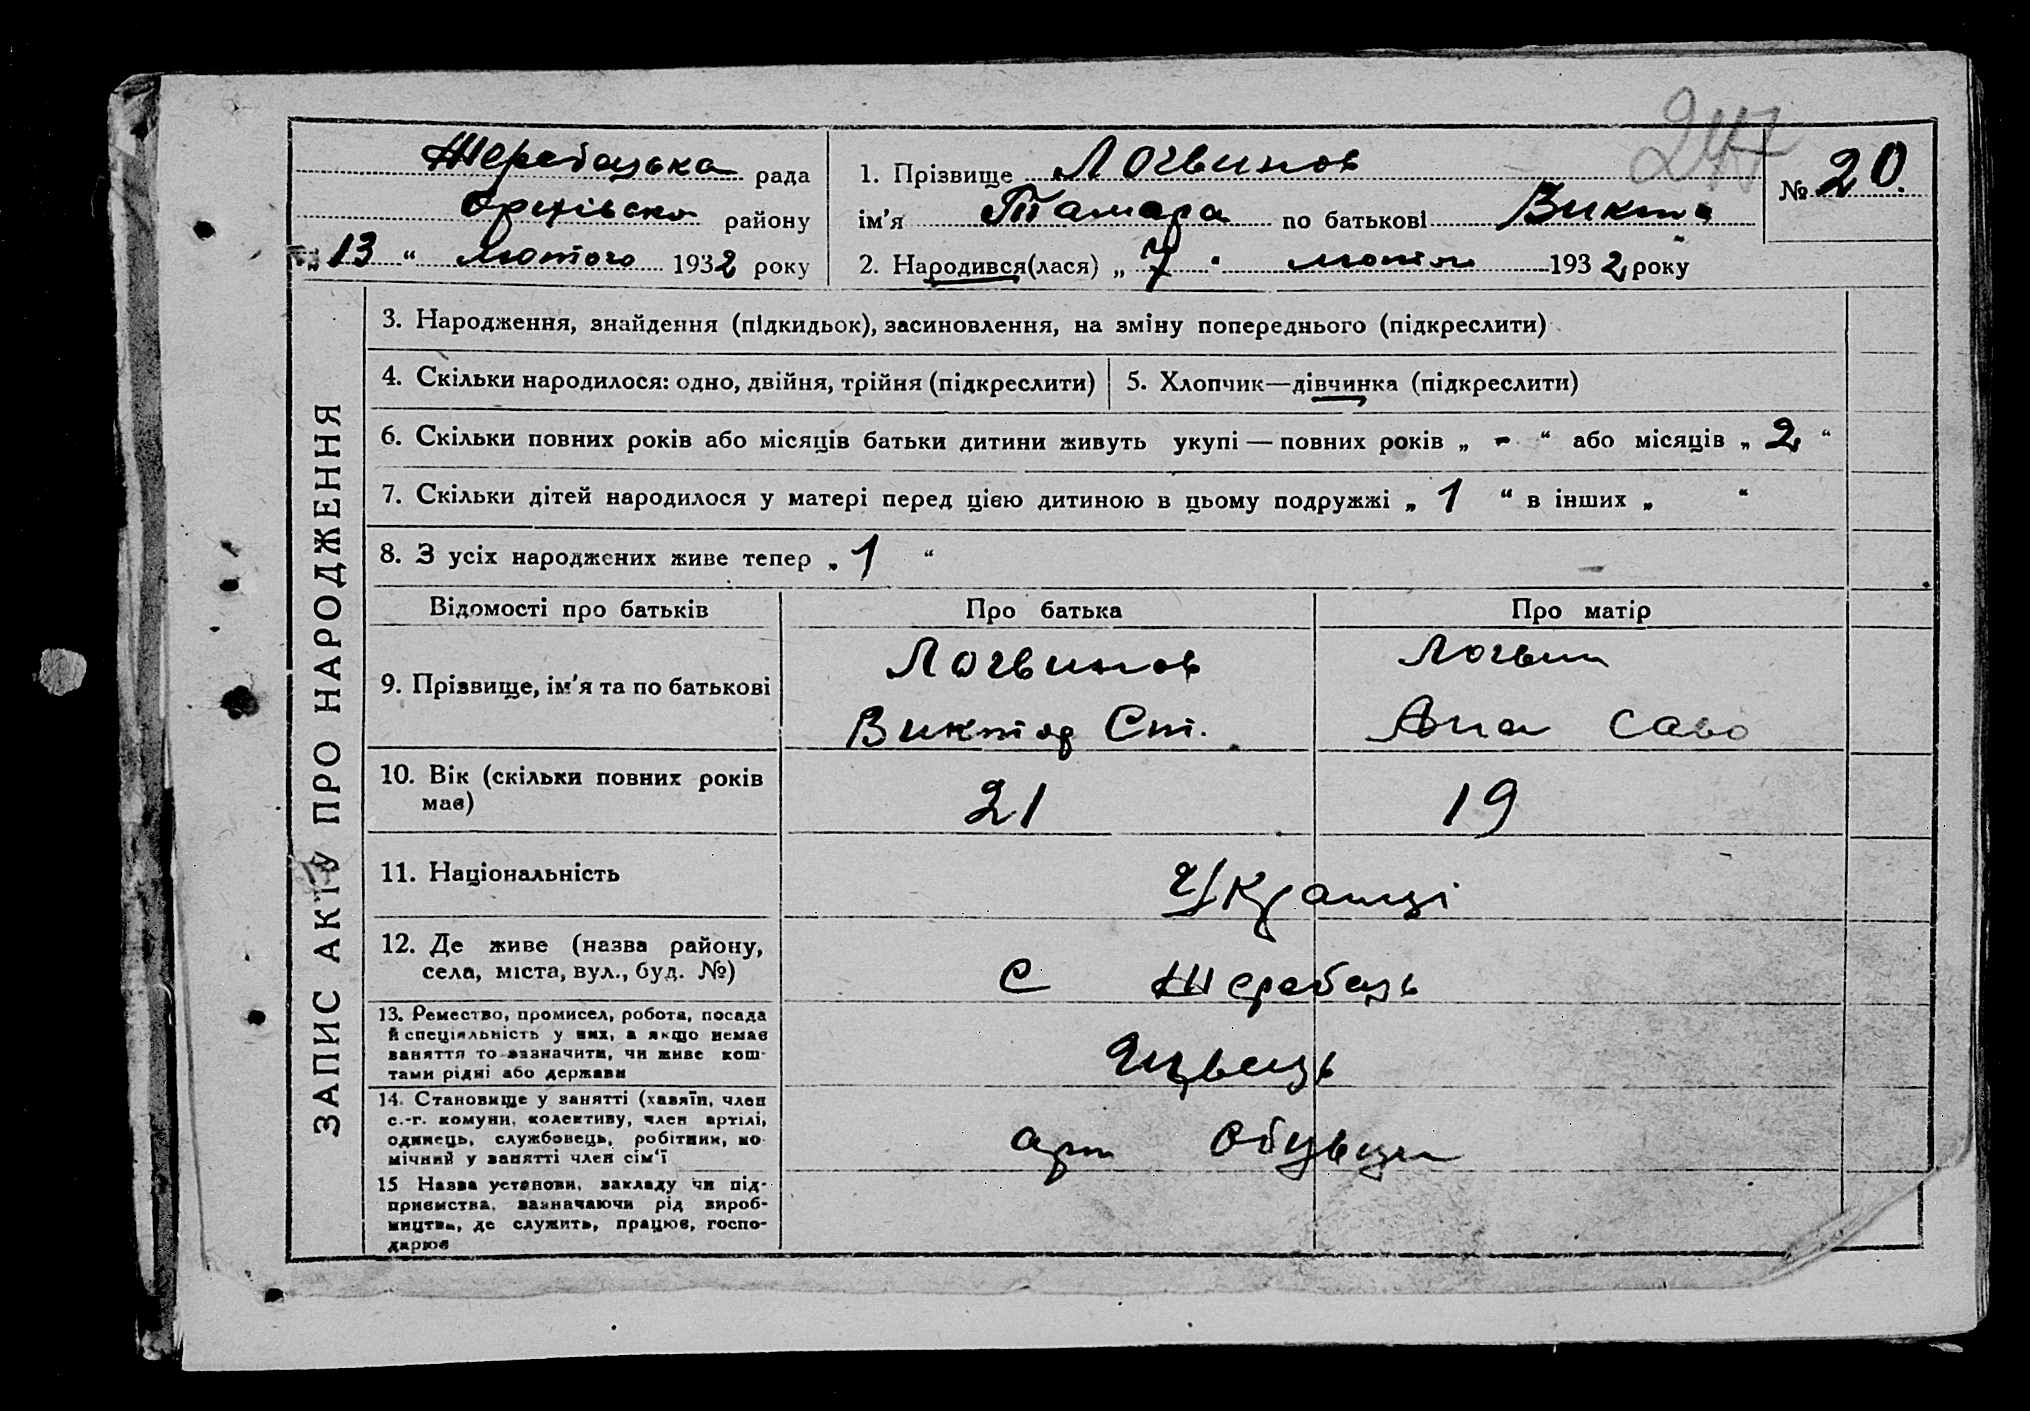 247
Жеребецька рада
Оріхівсько району
„ 13 “ лютого 1932 року
1. Прізвище Логвинов
№ 20.
ім'я Тамара по батькові Викт
2. Народився(лася) „ 7 “ лютого 1932 року
ЗАПИС АКТУ ПРО НАРОДЖЕННЯ
3. Народження, знайдення (підкидьок), засиновлення, на зміну попереднього (підкреслити)
4. Скільки народилося: одно, двійня, трійня (підкреслити)
5. Хлопчик—дівчинка (підкреслити)
6. Скільки повних років або місяців батьки дитини живуть укупі — повних років „ - “ або місяців „ 2 “
7. Скільки дітей народилося у матері перед цією дитиною в цьому подружжі „ 1 “ в інших „ “
8. З усіх народжених живе тепер „ 1 “
Відомості про батьків
Про батька
Про матір
9. Прізвище, ім'я та по батькові
Логвинов
Виктор Ст.
Логвин
Ана Саво
10. Вік (скільки повних років
має)
21
19
11. Національність
Украинці
12. Де живе (назва району,
села, міста, вул., буд. №)
С Жеребець
13. Ремество, промисел, робота, посада
й спеціяльність у них, а якщо немає
заняття то зазначити, чи живе кош-
тами рідні або держави
14. Становище у занятті (хазяїн, член
с.-г. комуни, колективу, член артілі,
одинець, службовець, робітник, по-
мічний у занятті член сім'ї
арт
15 Назва установи, закладу чи під-
приємства, зазначаючи рід вироб-
ництва, де служить, працює, госпо-
дарює